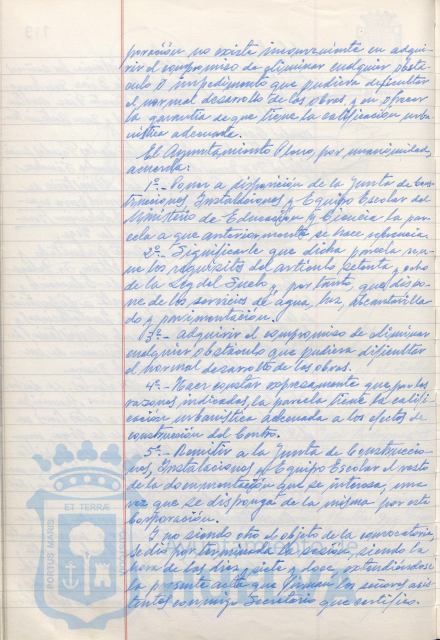 poración no existe inconveniente en adqui-
rir el compromiso de eliminar cualquier obstá-
culo o impedimento que pudiera dificultar
el normal desarrollo de las obras, y en ofrecer
la garantía de que tiene la calificación urba-
nística adecuada.
El Ayuntamiento Pleno, por unanimidad,
acuerda:
1º.- Poner a disposición de la Junta de Cons-
trucciones, Instalaciones y Equipo Escolar del
Ministerio de Educación y Ciencia la par-
cela a que anteriormente se hace referencia.
2º.- Significarle que dicha parcela reu-
ne los requisitos del artículo setenta y ocho
de la Ley del Suelo y, por tanto, que dispo-
ne de los servicios de agua, luz, alcantarilla-
do y pavimentación.
3º.- Adquirir el compromiso de eliminar
cualquier obstáculo que pudiera dificultar
el normal desarrollo de las obras.
4º.- Hacer constar expresamente que por las
razones indicadas, la parcela tiene la califi-
cación urbanística adecuada a los efectos de
construcción del Centro.
5º.- Remitir a la Junta de Construccio-
nes, Instalaciones y Equipo Escolar el resto
de la documentación que se interesa, una
vez que se disponga de la misma por esta
Corporación.
Y no siendo otro el objeto de la convocatoria
se dio por terminada la sesión, siendo la
hora de las diez y siete y doce, extendiéndose
la presente acta que firman los señores asis-
tentes conmigo Secretario que certifico.
PORTUS MARIS
ET TERRÆ
CUSTODIA